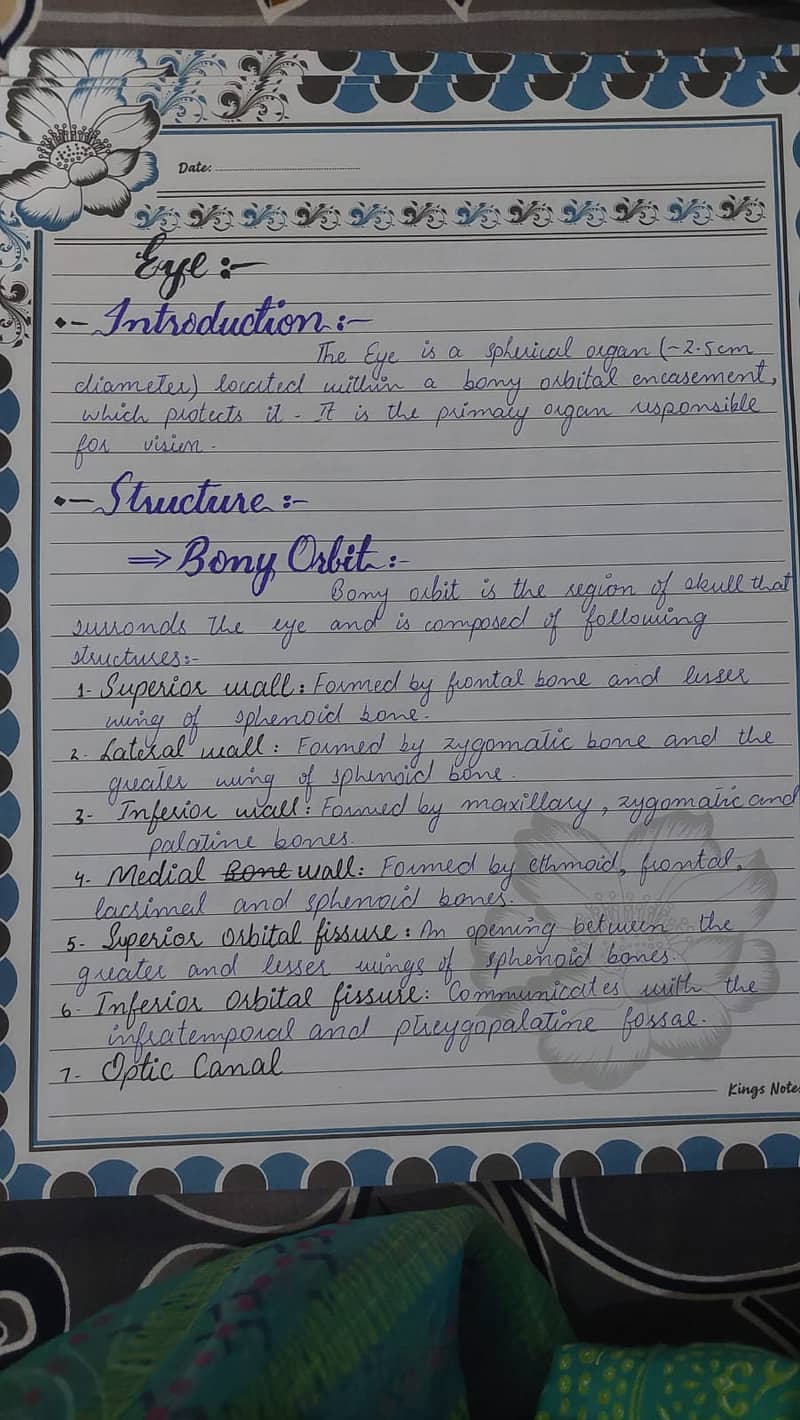 Date:
Eye :-
•- Introduction :-
The Eye is a spherical organ (~2.5cm
diameter) located within a bony orbital encasement,
which protects it. It is the primary organ responsible
for vision.
•- Structure :-
⇒ Bony Orbit :-
Bony orbit is the region of skull that
surronds the eye and is composed of following
structures:-
1- Superior wall: Formed by frontal bone and lesser
wing of sphenoid bone.
2- Lateral wall: Formed by zygomatic bone and the
greater wing of sphenoid bone.
3- Inferior wall: Formed by maxillary, zygomatic and
palatine bones.
4- Medial Bone wall: Formed by ethmoid, frontal,
lacrimal and sphenoid bones.
5- Superior Orbital fissure: An opening between the
greater and lesser wings of sphenoid bones.
6- Inferior Orbital fissure: Communicates with the
infratemporal and pterygopalatine fossae.
7- Optic Canal
Kings Note